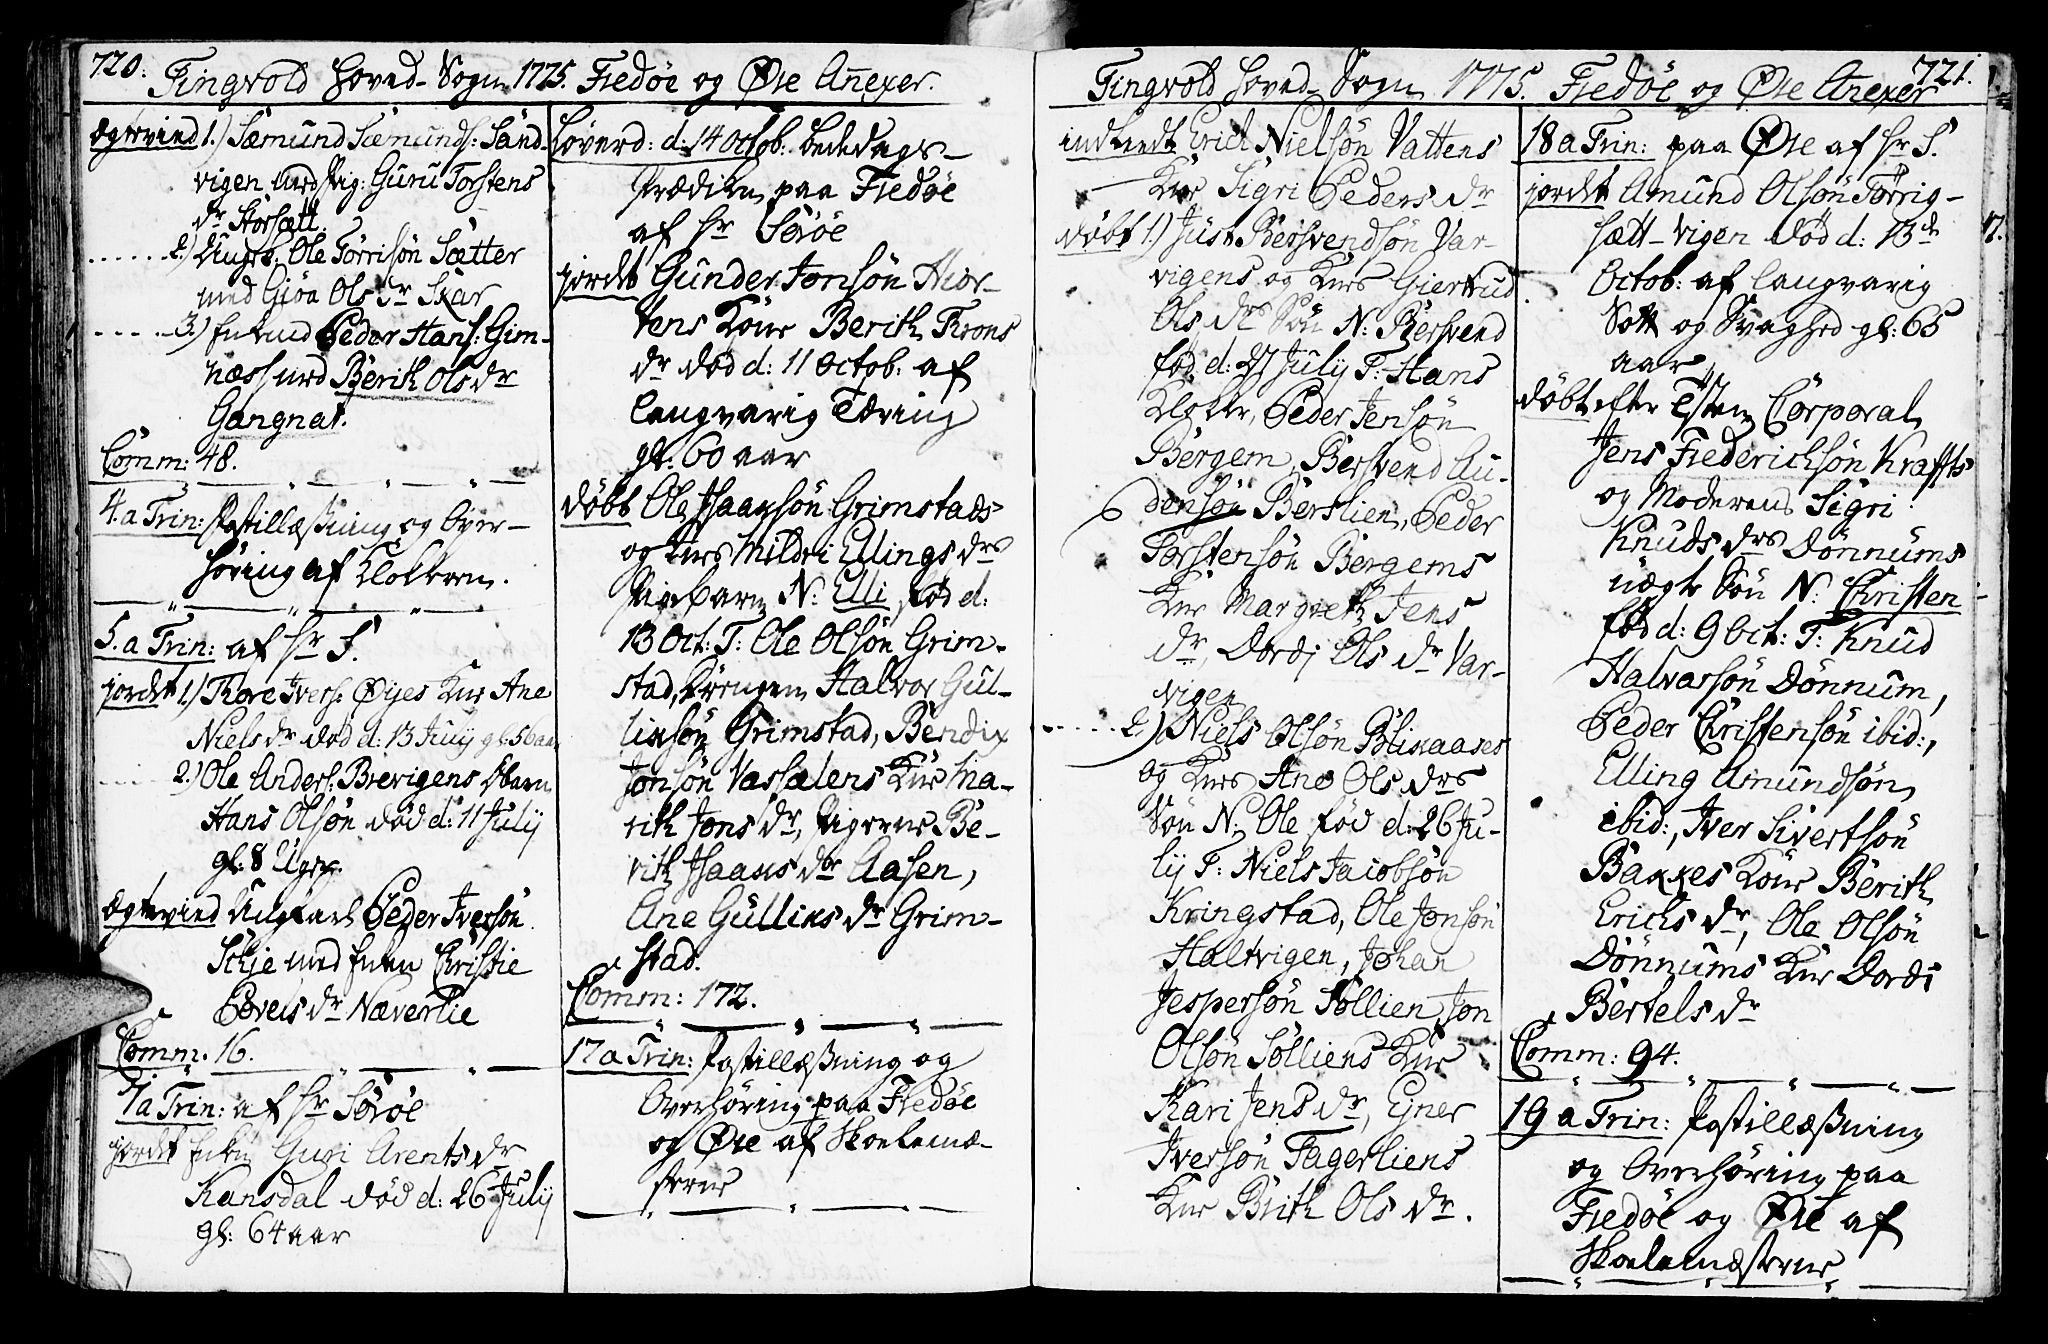 720.
Tingvold Hoved-Sogn 1775. Fredøe og Øre Anexer.
Ægtevied 1.) Sæmund Sæmunds: Sand-
vigen med Pig: Guru Torstens
dr Storsætt.
2.) Ungk. Ole Torrisøn Sætter
med Gjøa Ols dr Skar
3.) Enkmd Peder Hans: Gim-
næss med Berith Ols dr
Gangnat.
Comm: 48.
4. a Trin: Postillæsning og Over-
høring af Klokkeren.
5. a Trin: af Hr S.
jordet 1.) Thore Ivers: Øyes Kne Ane
Niels dr død d: 13 July gl: 56 aar
2.) Ole Anders: Brevigens Dbarn
Hans Olsøn død d: 11 July
gl: 8 Uger.
Ægtevied Ungkarl Peder Iversøn
med Enken Christie
Povels dr Næverlie
Comm. 16.
7 a Trin: af Hr Sørøe
jordet Enken Guri Arents dr
Kansdal død d: 26 July
gl: 64 aar
Løverd: d: 14 Octob: Bededags-
Prædiken paa Fredøe
af Hr Sørøe
jordet Gunder Jonsøn Hior-
tens Kone Berith Trons
dr død d: 11 Octob: af
langvarig Tæring
gl: 60 aar
døbt Ole Isaaxsøn Grimstads
og Knes Mildri Ellings drs
Pigebarn N: Elli fød d:
13 Oct: T: Ole Olsøn Grim-
stad, Halvor Gul-
lixsøn Grimstad, Bendix
Jonsøn Vassælens Kne Ma-
rith Jons dr, Pigerne Be-
rith Isaaxs dr Aasen,
Ane Gullixs dr Grim-
stad.
Comm: 172.
17 a Trin: Postillæsning og
Overhøring paa Fredøe
og Øre af Skolemæ-
sterne
721.
Tingvold Hoved-Sogn 1775. Fredøe og Øre Anexer
indledt Erich Nielsøn Vattens
Kne Sigri Peders dr
døbt 1.) Just Bersvendsøn Var-
vigens og Knes Giertrud
Ols drs Søn N: Bersvend
fød d: 27 July T: Hans
Klokker, Peder Jensøn
Bergem, Bersvend Au-
densøn Berslien, Peder
Torstensøn Bergems
Kne Margreth Jens
dr, Dordi Ols dr Var-
vigen
2.) Niels Olsøn Blixaases
og Knes Ane Ols drs
Søn N: Ole fød d: 26 Ju-
ly T: Niels Jacobsøn
Kringstad, Ole Jonsøn
Haltvigen, Johan
Jespersøn Sollien, Jon
Olsøn Solliens Kne
Kari Jens dr, Ejner
Iversøn Fagerliens
Kne Brith Ols dr.
18 a Trin: paa Øre af Hr S.
jordet Amund Olsøn Torrig-
sætt-vigen død d: 13de
Octob: af langvarig
Sott og Svaghed gl: 65
aar
døbt efter Corporal
Jens Frederichsøn Kraffts
og Moderens Sigri
Knuds drs Dønnums
uægte Søn N: Christen
fød d: 9 Oct: T: Knud
Halvarsøn Dønnum,
Peder Christensøn ibid:,
Elling Amundsøn
ibid:, Iver Sivertsøn
Bakkes Kone Berith
Erichs dr, Ole Olsøn
Dønnums Kne Dordi
Bertels dr
Comm: 94.
19 a Trin: Postillæsning
og Overhøring paa
Fredøe og Øre af
Skolemæsterne